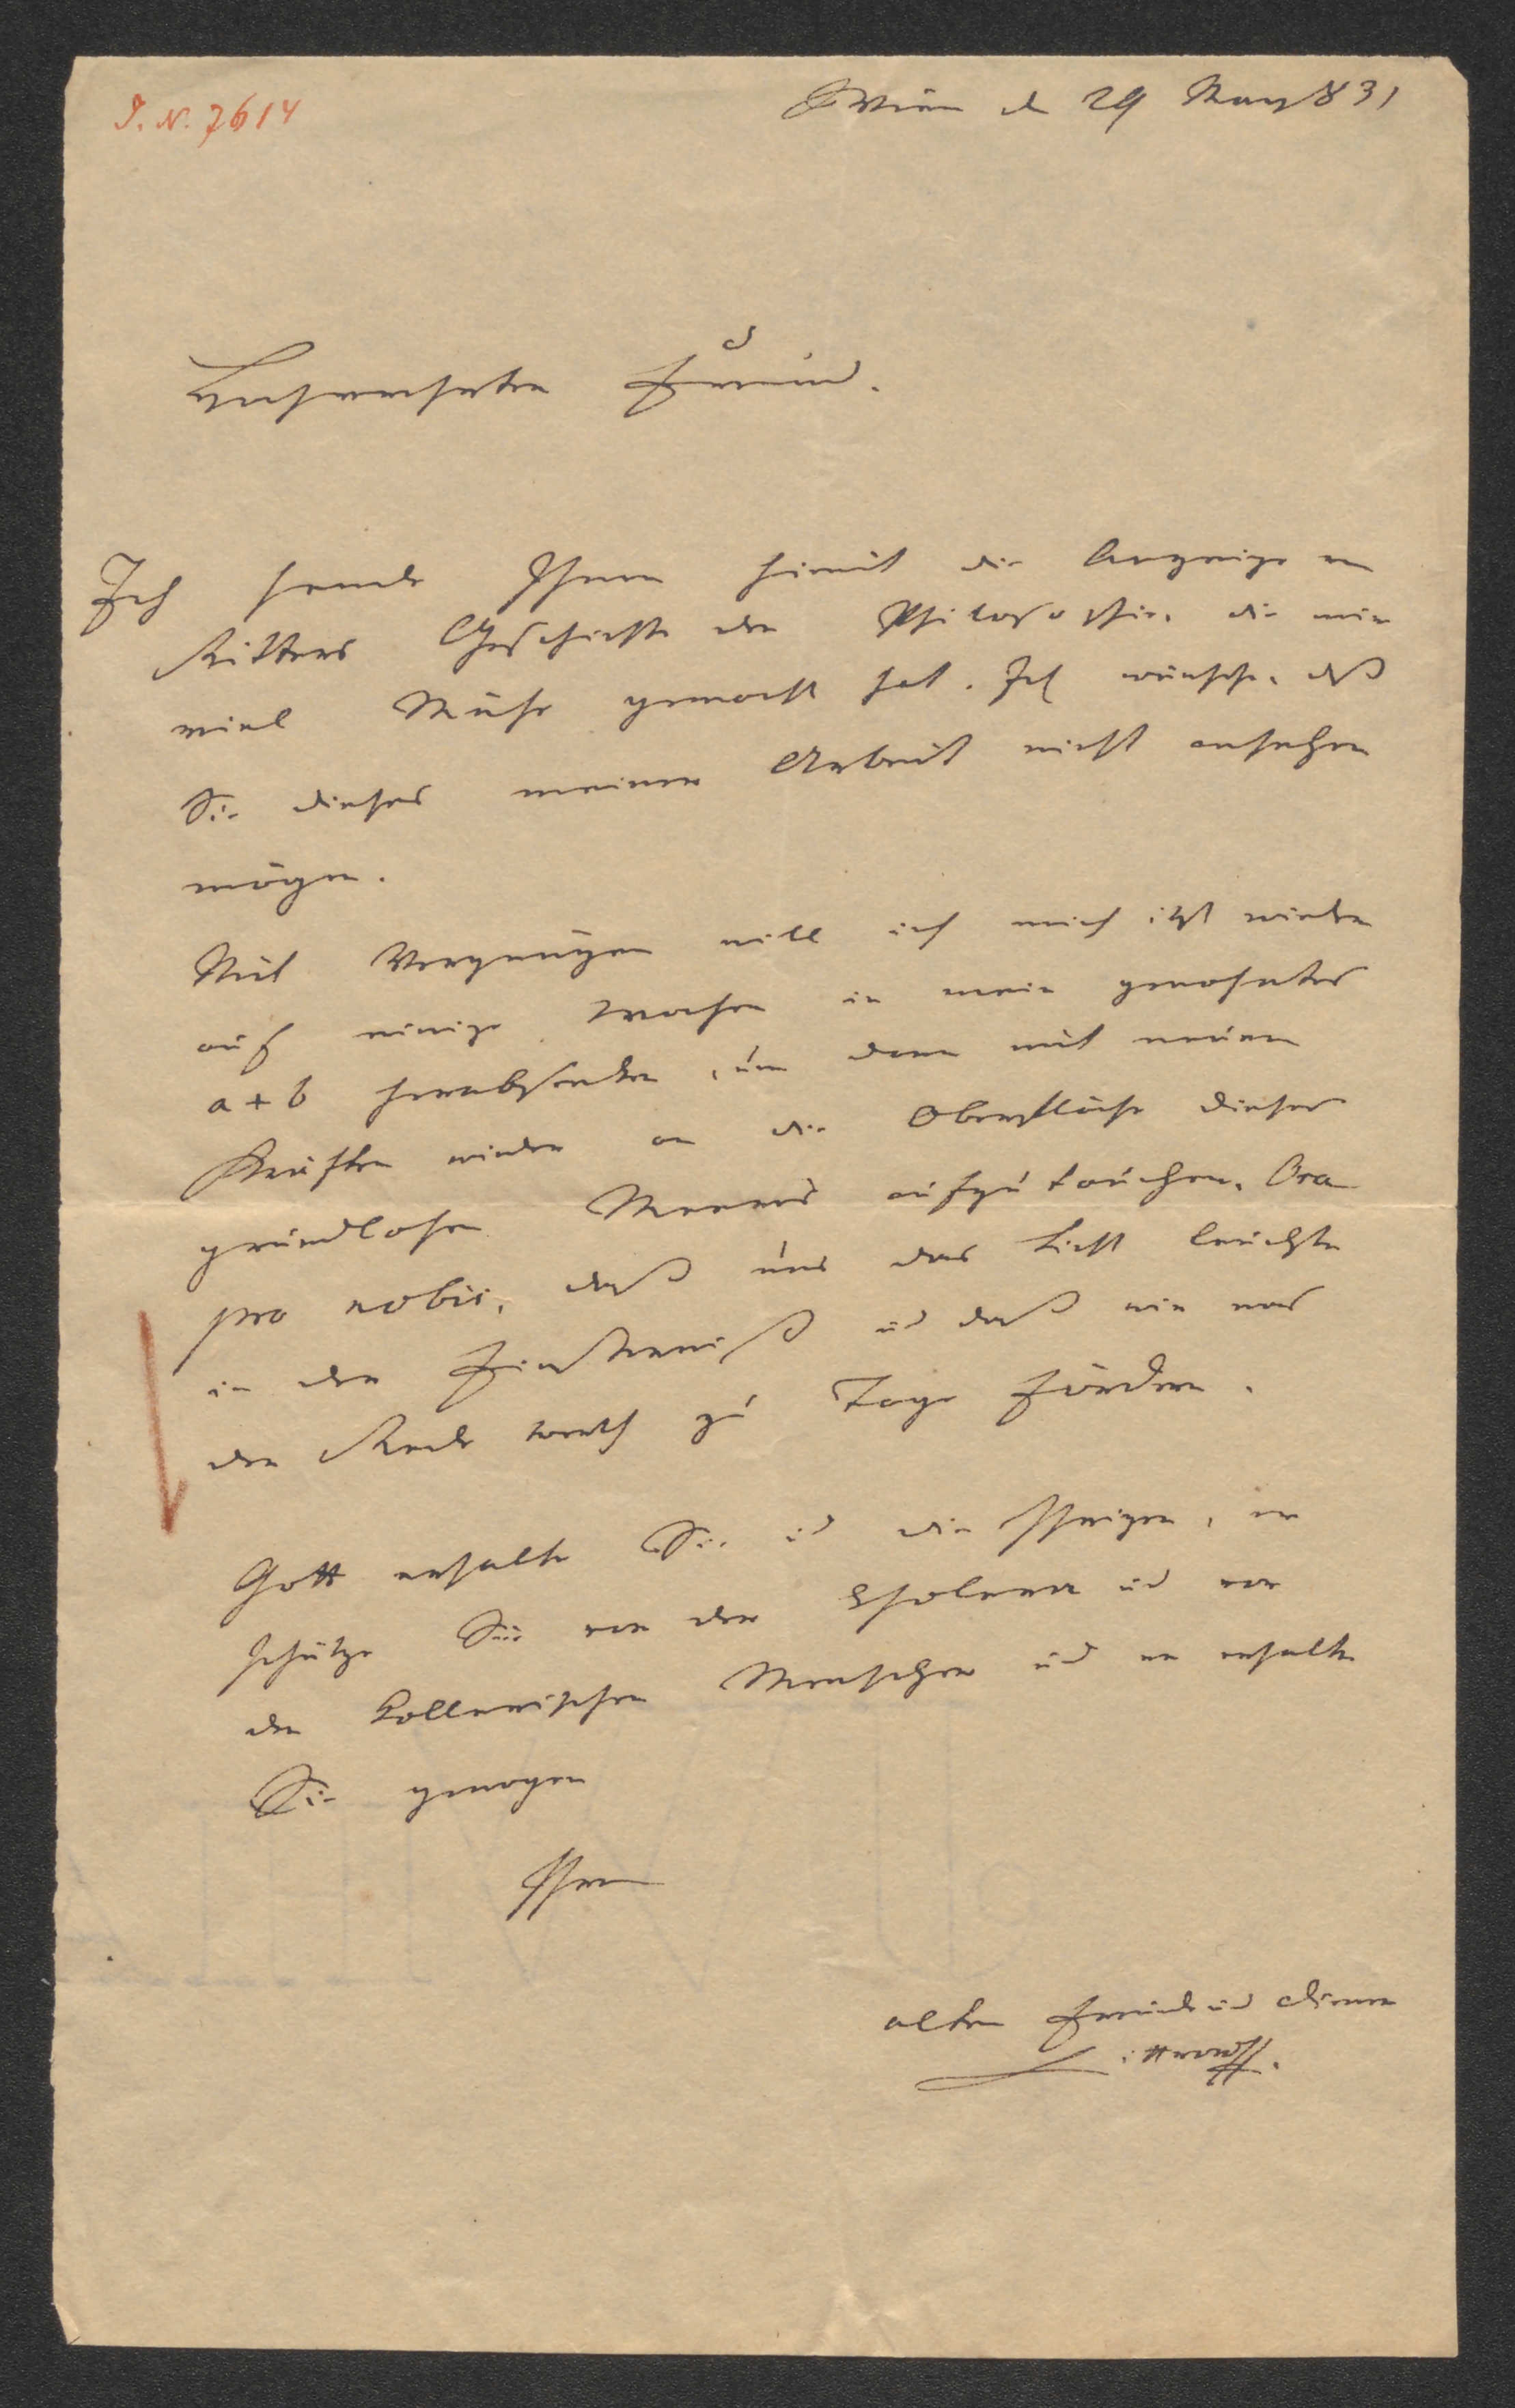 J. N. 7614
Wien d 29 May 831
Hochverehrter Freund.
Ich sende Ihnen hiemit die Anzeige von
Ritters Geschichte der Philosophie, die mir
viel Mühe gemacht hat. Ich wünsche, daß
Sie dieses meiner Arbeit nicht ansehen
mögen.
Mit Vergnügen will ich mich itzt wieder
auf einige Wochen in mein gewohntes
a + b herabsenken, um dann mit neuen
Kräften wieder an die Oberfläche dieses
grundlosen Meeres aufzutauchen. Ora
pro nobis, daß uns das Licht leuchte
in der Finsterniß und daß wir was
der Rede werth zu Tage fördern.
Gott erhalte Sie und die Ihrigen, er
schütze Sie vor der Cholera und vor
den kollerischen Menschen und er erhalte
Sie gewogen
Ihrem
alten Freund und Diener
Littrow